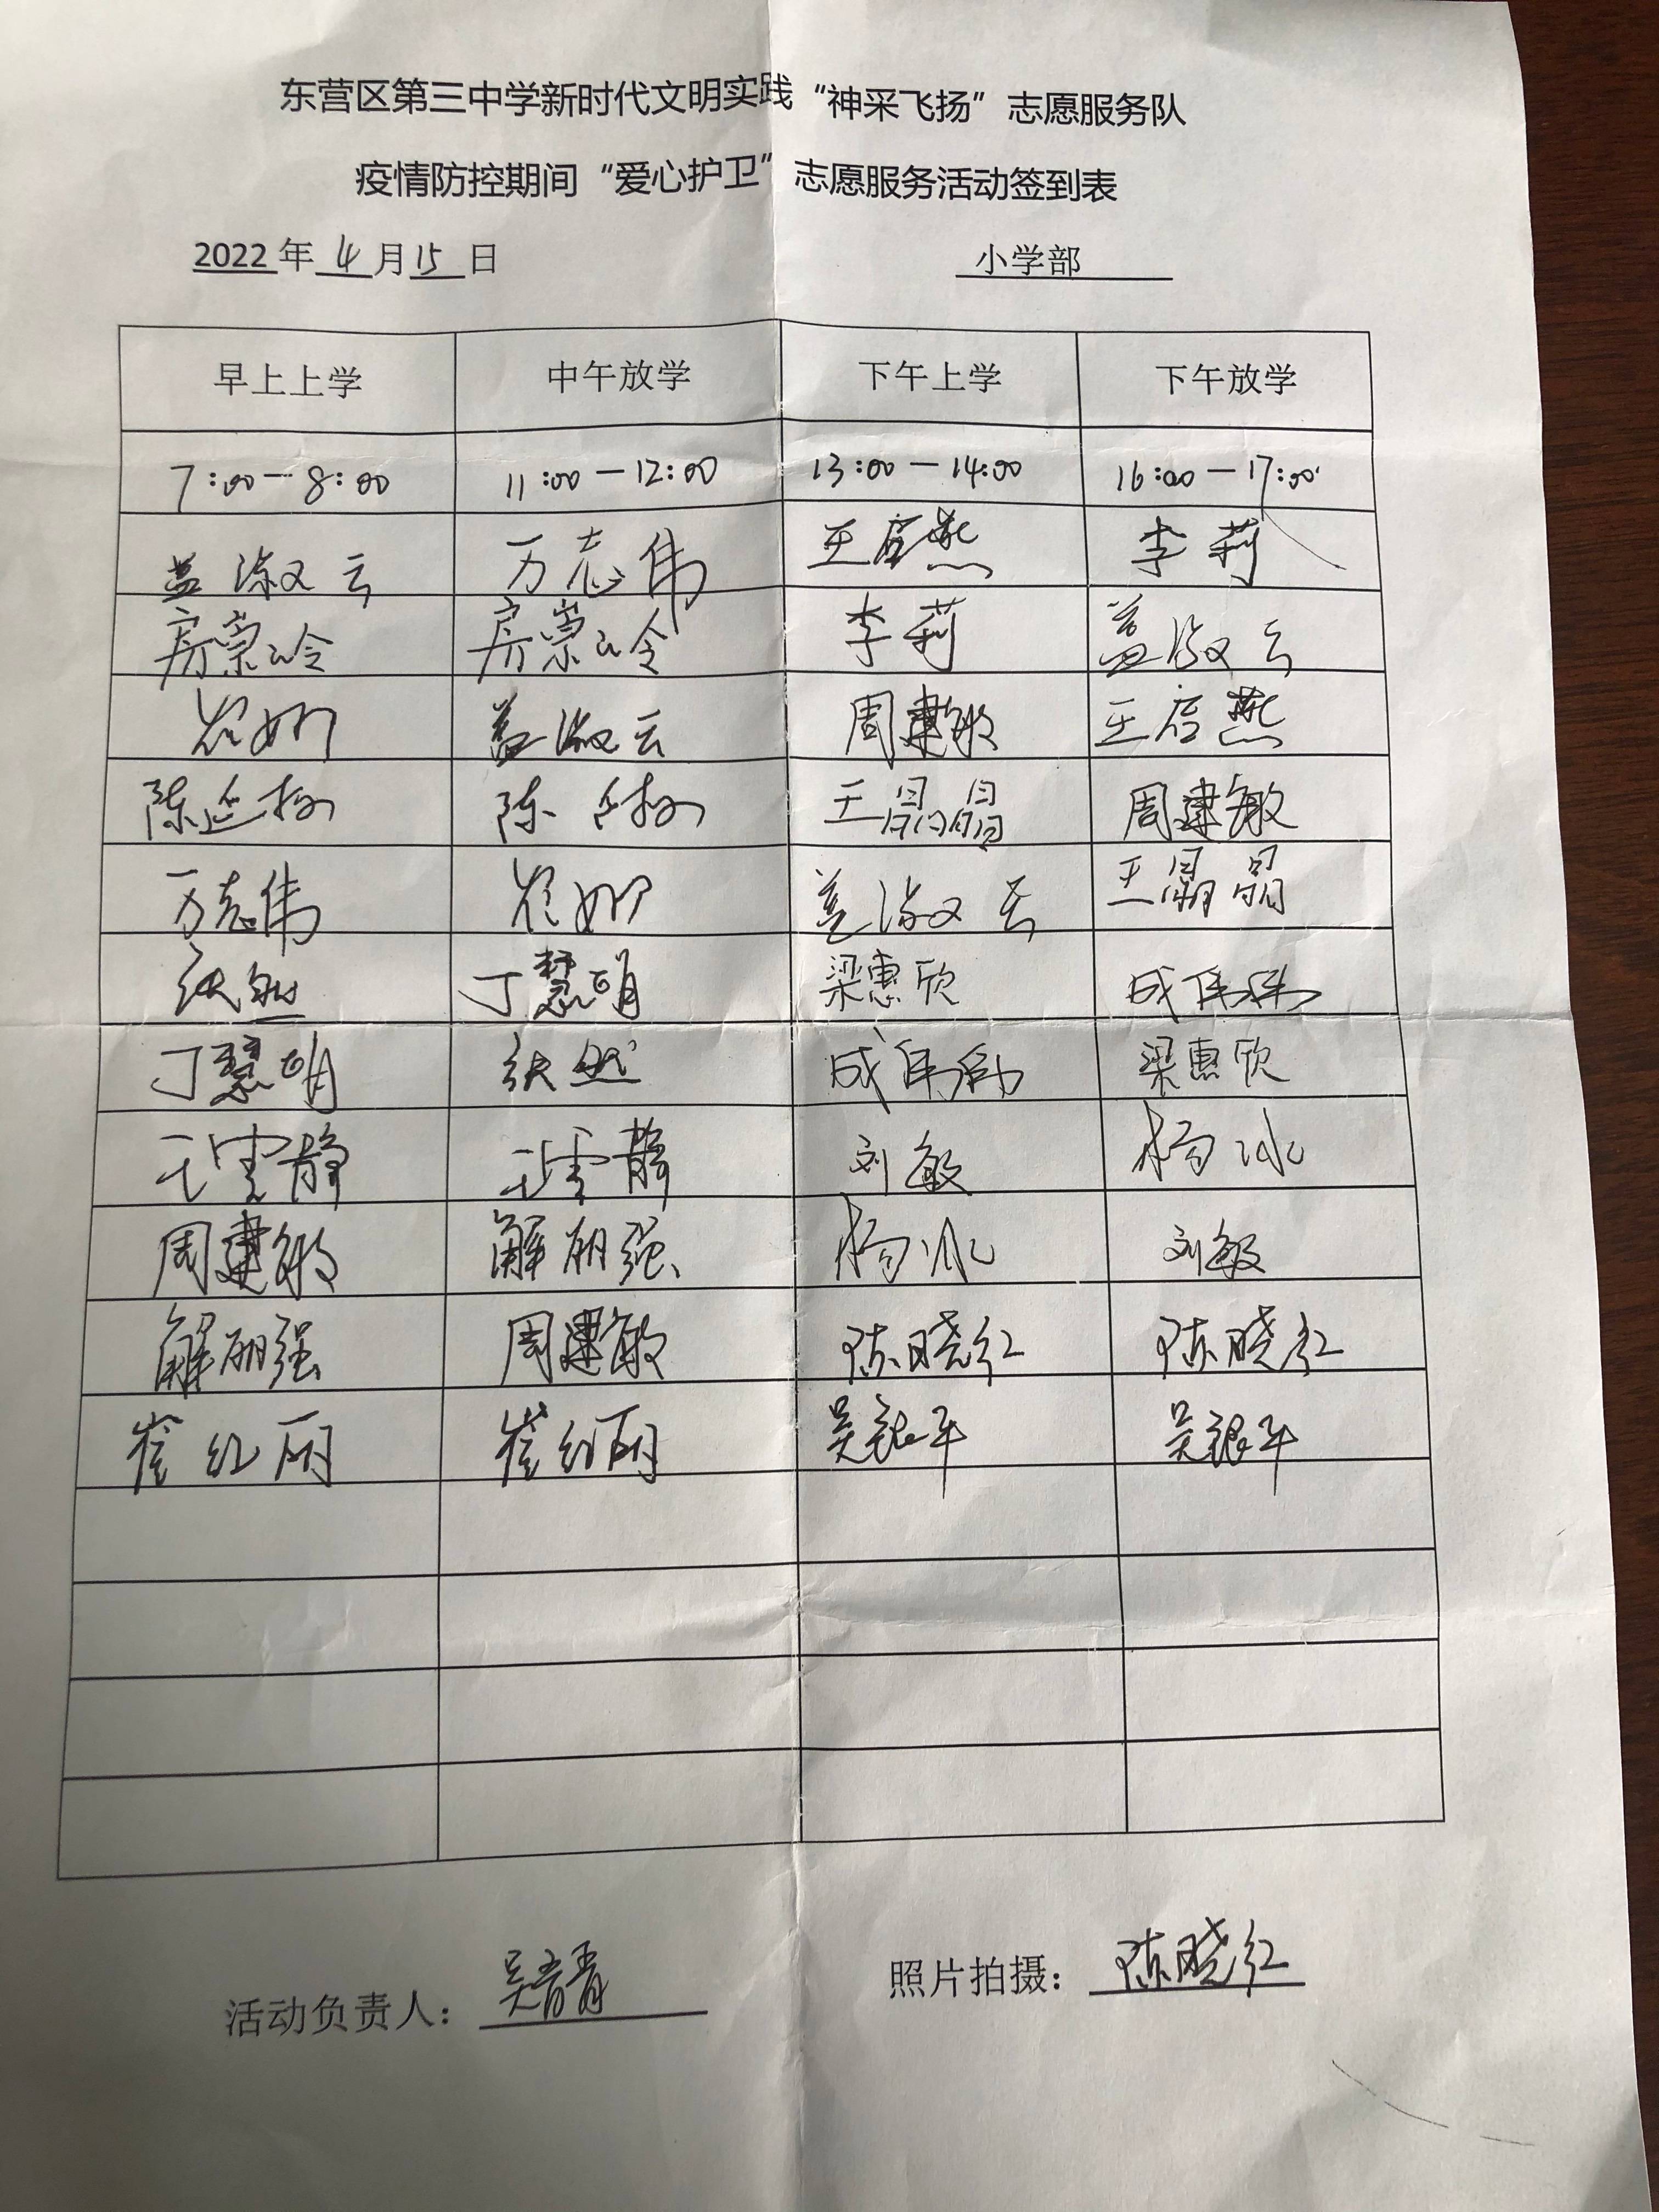 东营区第三中学新时代文明实践“神采飞扬”志愿服务队
疫情防控期间“爱心护卫”志愿服务活动签到表
2022年4月15日 小学部
早上上学 中午放学 下午上学 下午放学
7:00—8:00 11:00—12:00 13:00—14:00 16:00—17:00
盖淑云 万志伟 王启燕 李莉
房荣玲 房荣玲 李莉 盖淑云
崔娜 盖淑云 周建敏 王启燕
陈 陈 王晶晶 周建敏
万志伟 崔娜 盖淑云 王晶晶
张然 丁慧明 梁惠欣 成伟伟
丁慧明 张然 成伟伟 梁惠欣
王雪静 王雪静 刘敏 杨冰
周建敏 解丽强 杨冰 刘敏
解丽强 周建敏 陈晓红 陈晓红
崔红丽 崔红丽 吴银平 吴银平
活动负责人：吴青青 照片拍摄：陈晓红